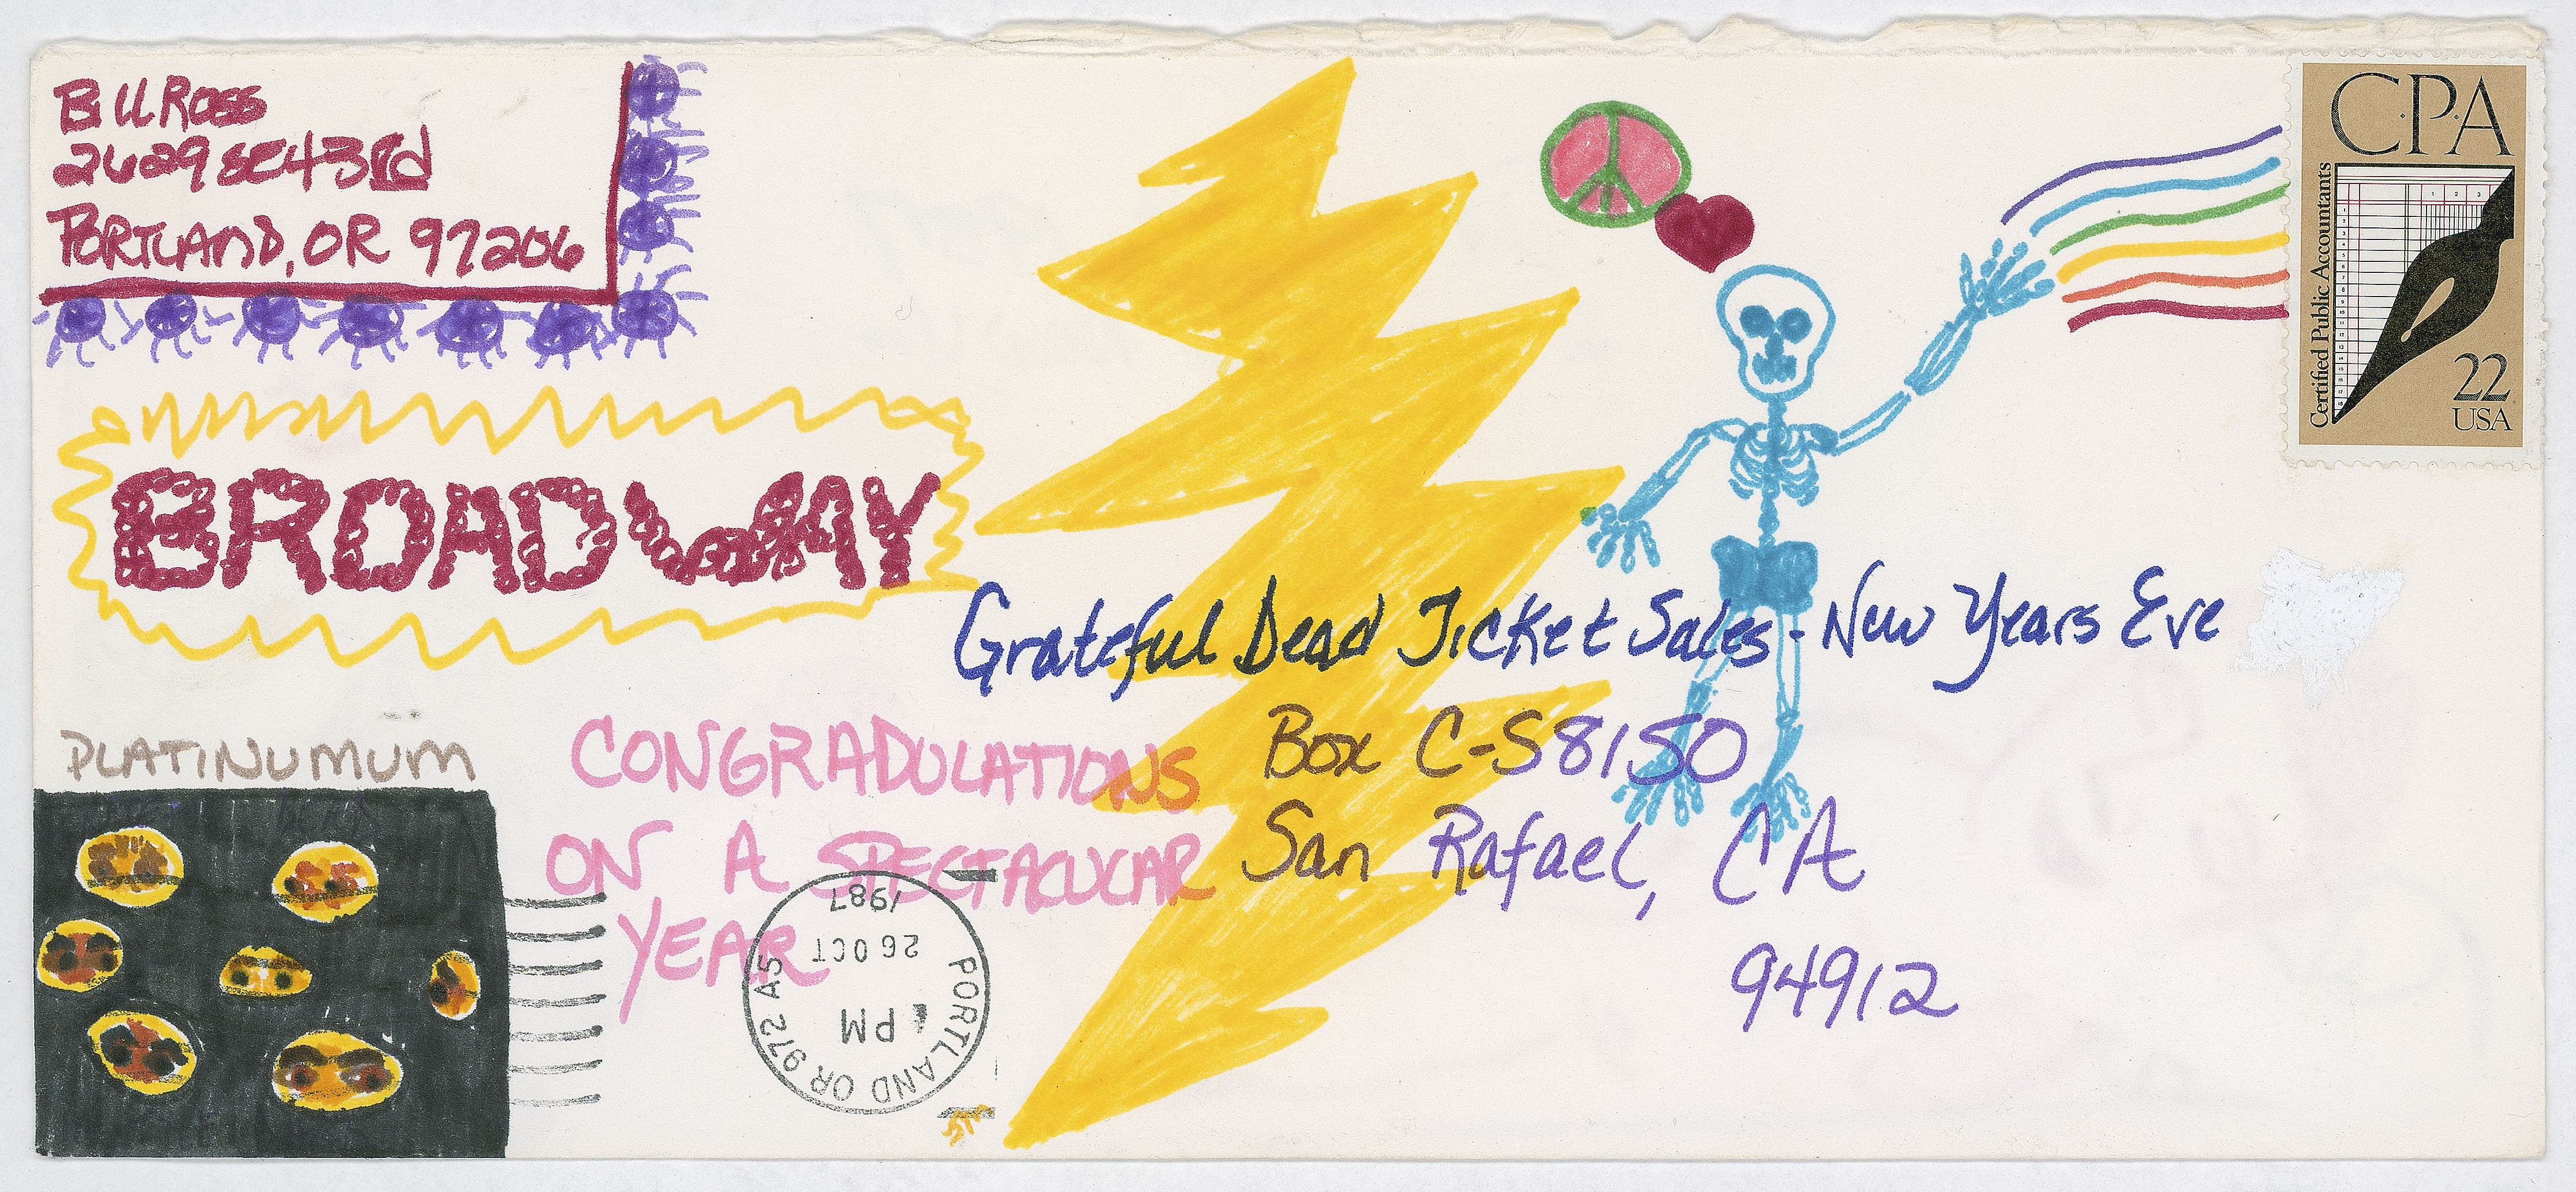 Bill Ross
2629 SE 43rd
PORTLAND, OR 97206
C.P.A
Certified Public Accountants
22
USA
BROADWAY
Grateful Dead Ticket Sales - New Years Eve
Box C-S8150
San Rafael, CA
94912
PLATINUMUM
CONGRADULATIONS
ON A SPECTACULAR
YEAR
PORTLAND OR 972 A5
PM
26 OCT
1987